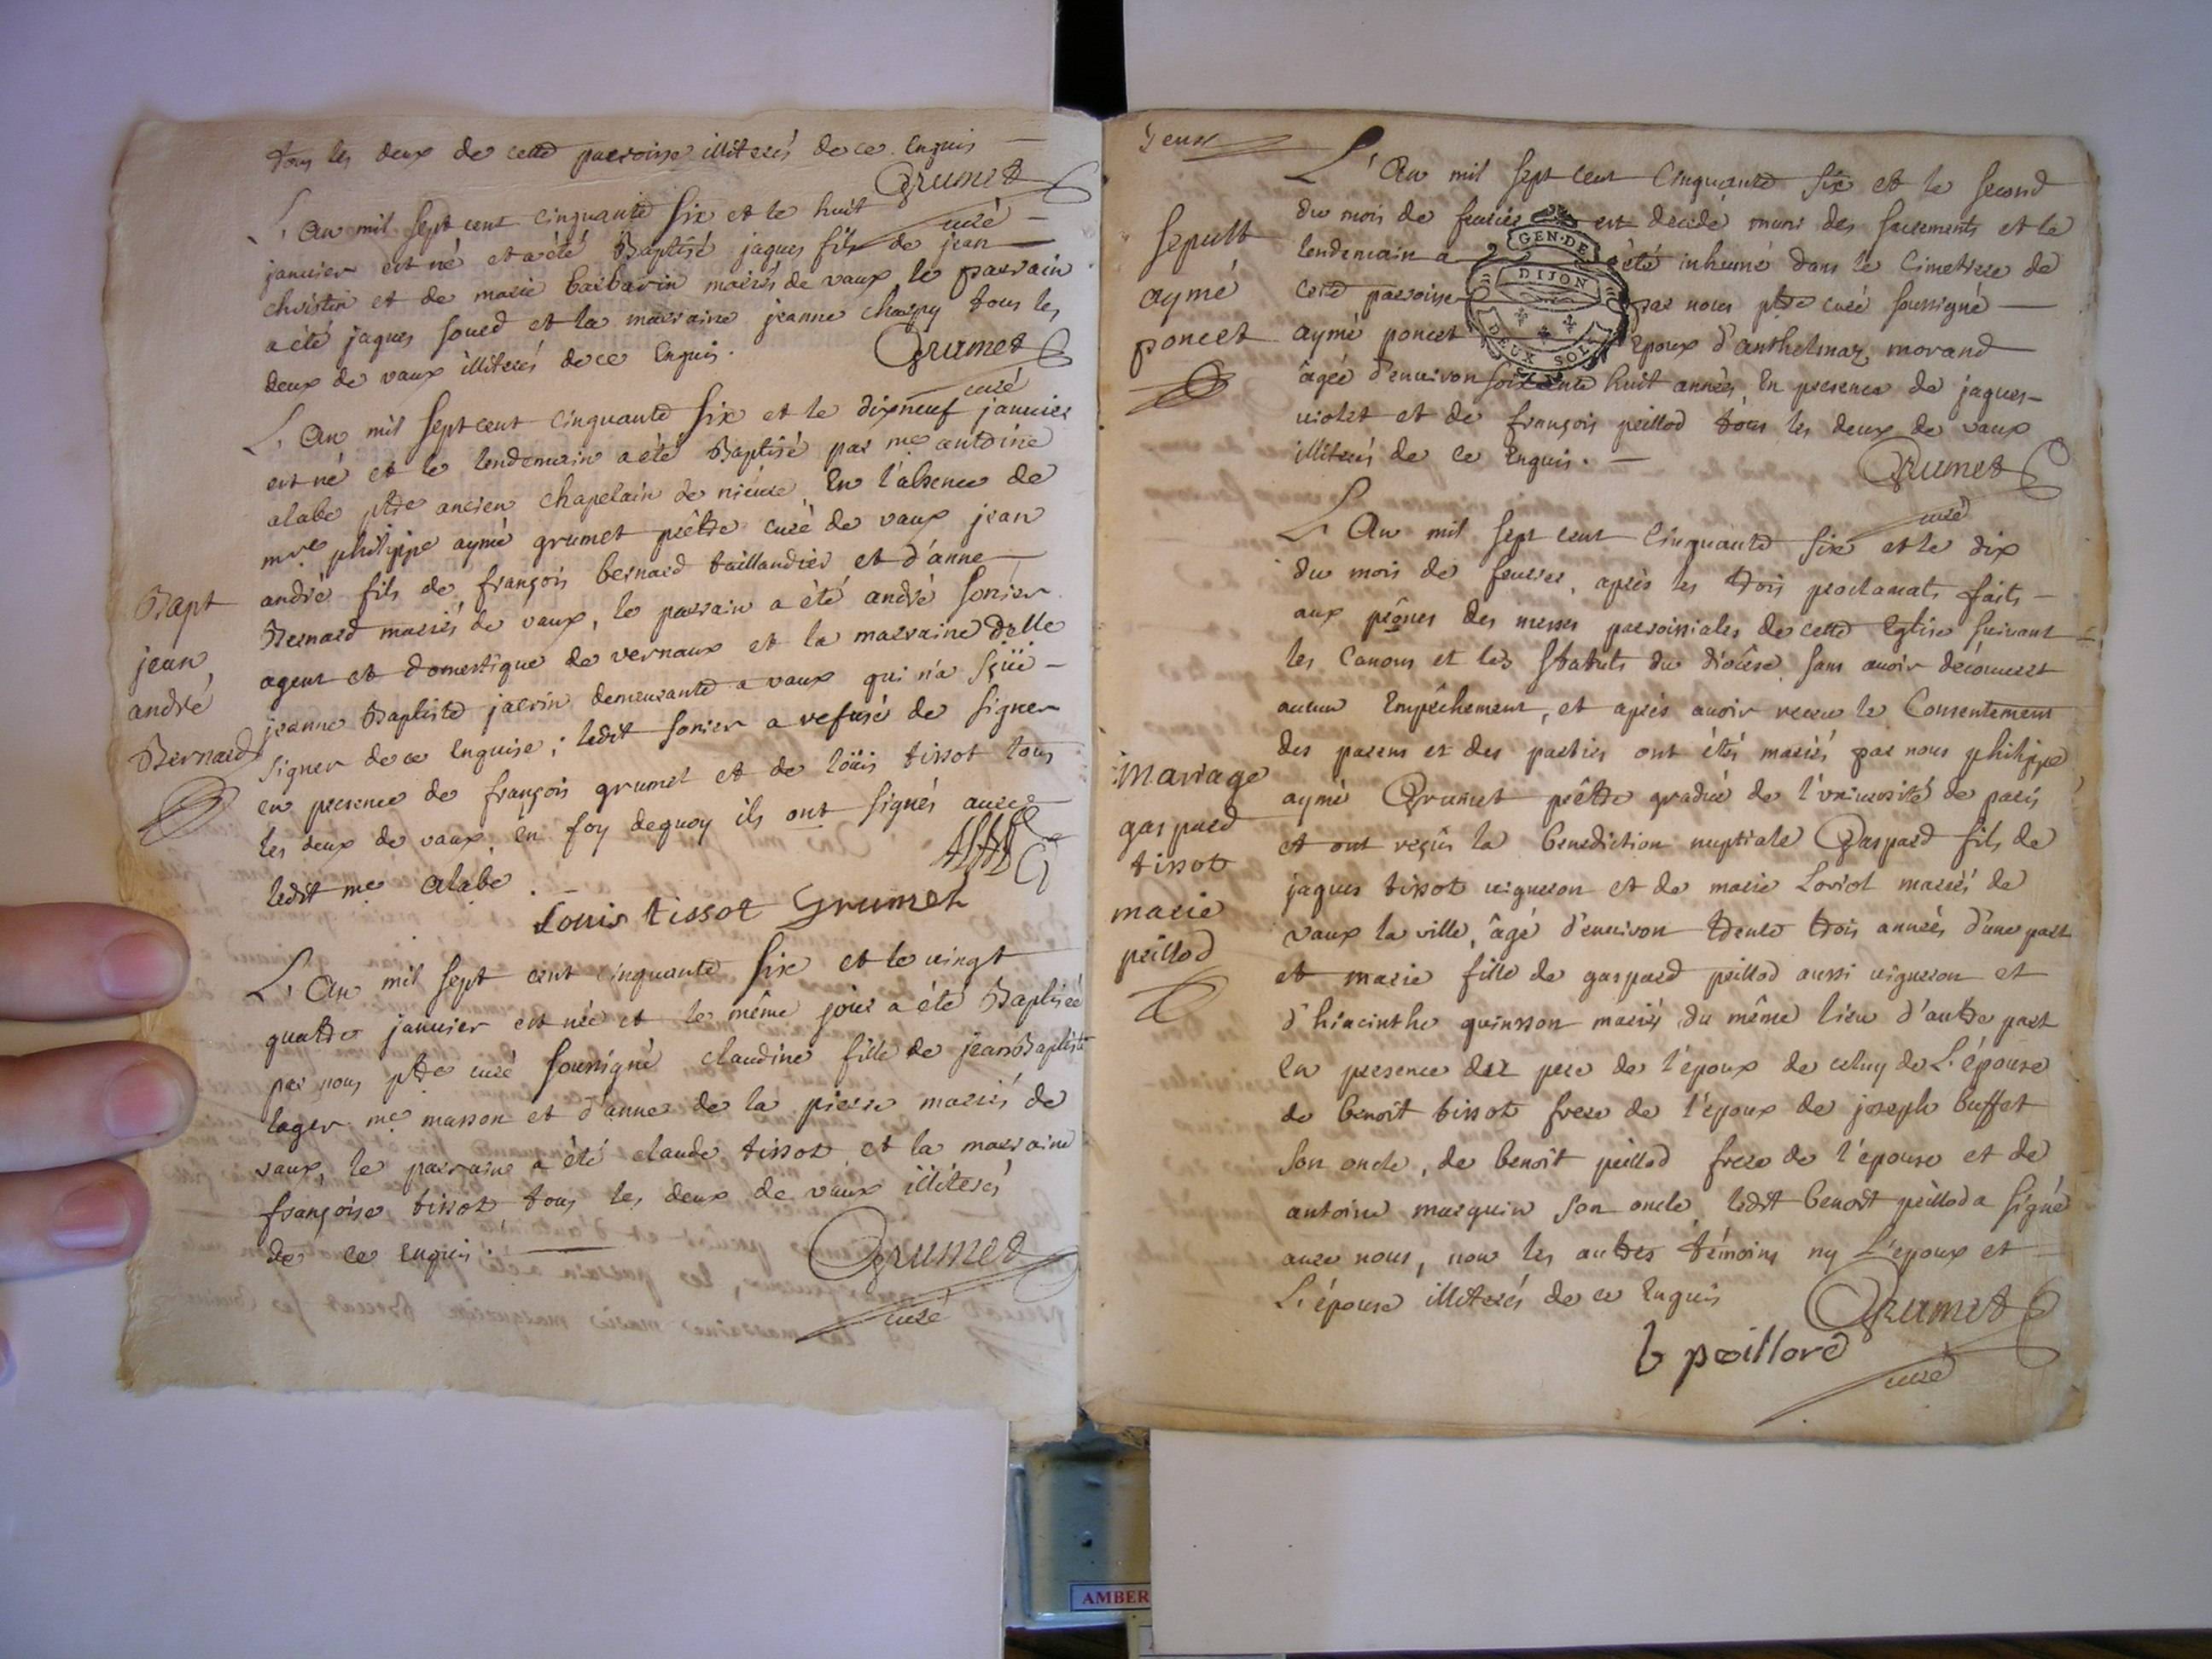 tous les deux de cette parroisse illiterés de ce Enquis
Grumet
curé
L'an mil sept cent cinquante six et le huit
janvier est né et a été Baptisé jaques fils de jean
christin et de marie barbarin mariés de vaux le parrain
a été jaques soued et la marraine jeanne charpy tous les
deux de vaux illiterés de ce Enquis.
Grumet
curé
L'an mil sept cent cinquante six et le dixneuf janvier
est né et le lendemain a été Baptisé par me antoine
alabe ptre ancien chapelain de niévre, En l'absence de
mre philippe aymé grumet prêtre curé de vaux jean
andré fils de françois bernard taillandier et d'anne
Bernard mariés de vaux, le parrain a été andré sonier
agent et domestique de vernaux et la marraine delle
jeanne Baptiste jacrin demeurante a vaux qui n'a sçüe
signer de ce enquise; ledit sonier a refusé de signer
en presence de françois grumet et de loüis tissot tous
les deux de vaux. En foy dequoy ils ont signés avec
ledit me alabe.
Louis tissot Grumet
Bapt
jean
andré
Bernard
L'an mil sept cent cinquante six et le vingt
quatre janvier est née et le même jour a été Baptisée
par nous ptre curé soussigné claudine fille de jean Baptiste
lager me masson et d'anne de la pierre mariés de
vaux, le parrain a été claude tissot et la marraine
françoise tissot tous les deux de vaux illiterés
de ce enquis.
Grumet
curé
deux
L'an mil sept cent cinquante six et le second
du mois de fevrier est decedé muni des sacrements et le
lendemain a été inhumé dans le Cimetiere de
cette parroisse par nous ptre curé soussigné
aymé poncet Epoux d'anthelmaz morand
âgée d'environ soixante huit années, En presence de jaques
violet et de françois peillod tous les deux de vaux
illiterés de ce enquis.
Grumet
curé
GEN·DE
DIJON
DEUX SOLS
Sepult
aymé
poncet
L'an mil sept cent cinquante six et le dix
du mois de fevrier, après les trois proclamats faits
aux prônes des messes parroissiales de cette Eglise suivant
les Canons et les statuts du diocèse, sans avoir découvert
aucun Empêchement, et après avoir receu le Consentement
des parens et des parties ont étés mariés par nous philippe
aymé Grumet prêtre gradué de l'université de paris
et ont reçûs la benediction nuptiale Gaspard fils de
jaques tissot vigneron et de marie Loriol mariés de
vaux la ville, âgé d'environ trente trois années d'une part
et marie fille de gaspard peillod aussi vigneron et
d'hiacinthe quinsson mariés du même lieu d'autre part
en presence du pere de l'époux de celuy de L'épouse
de benoît tissot frere de l'époux de joseph buffet
son oncle, de benoit peillod frere de l'épouse et de
antoine marguin son oncle, ledit benoit peillod a signé
avec nous, non les autres témoins ny L'époux et
L'épouse illiterés de ce Enquis
Grumet
b peillord
curé
Mariage
gaspard
tissot
marie
peillod
AMBER